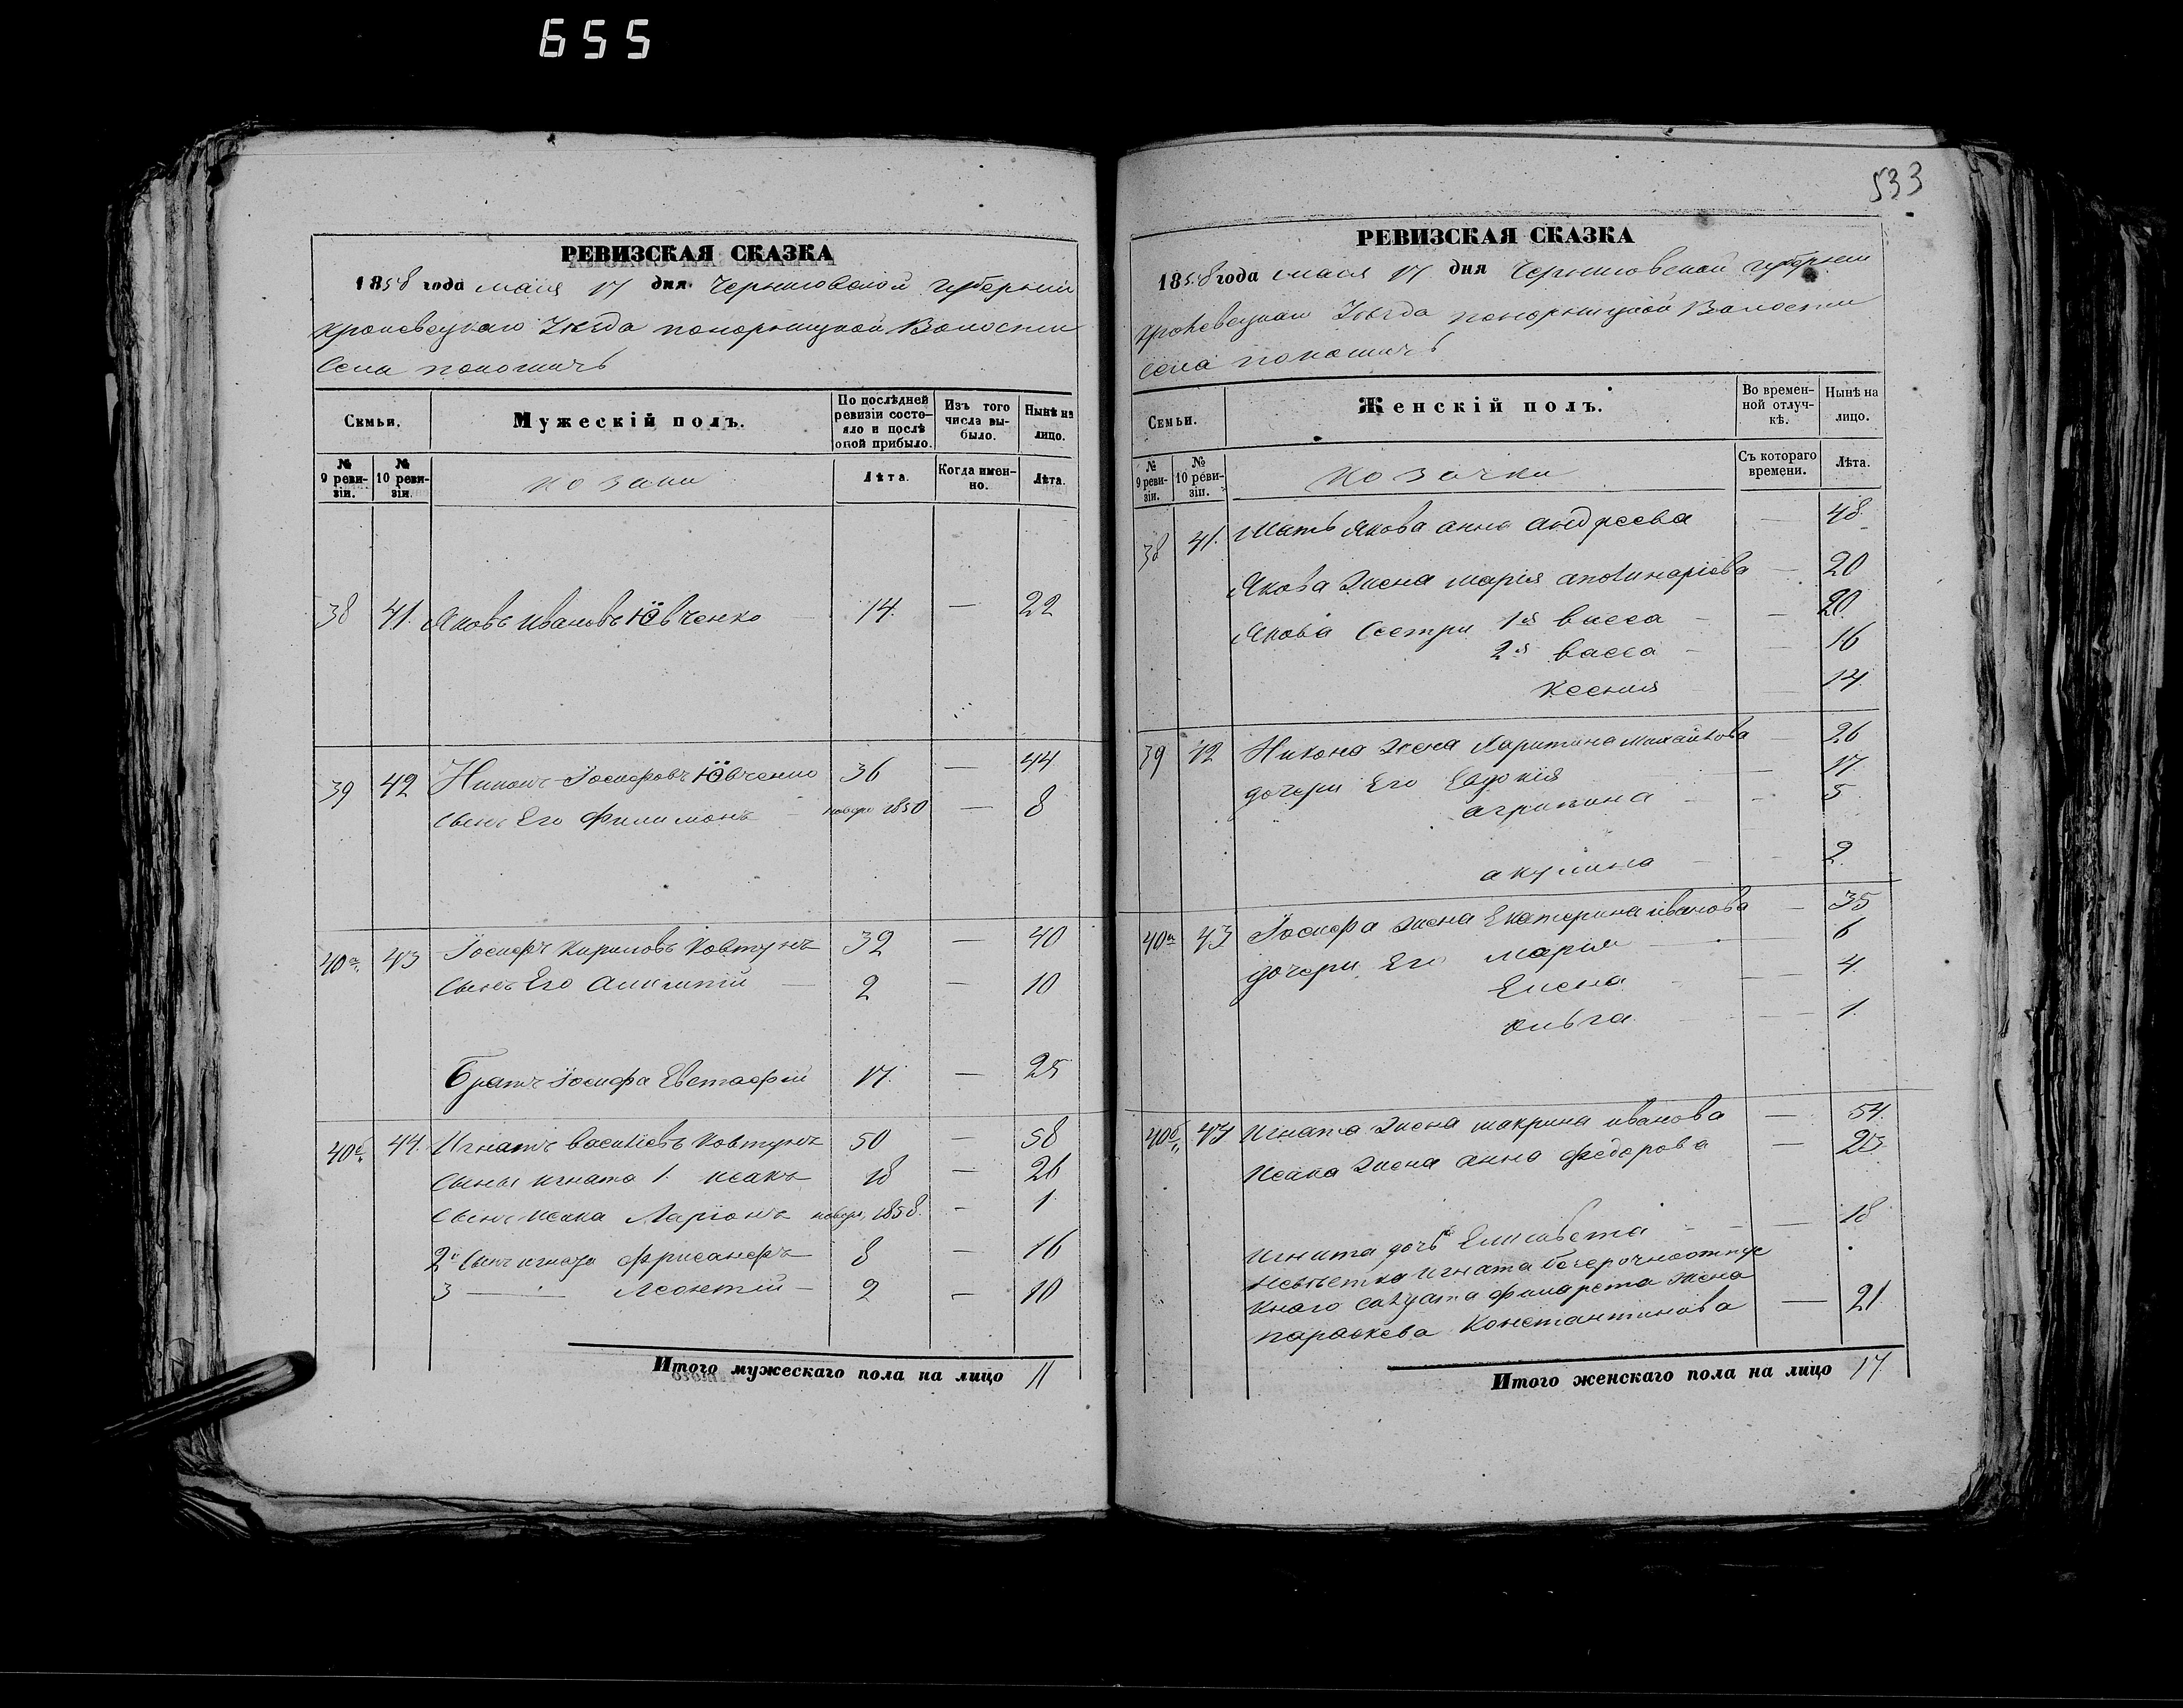 655
РЕВИЗСКАЯ СКАЗКА
1858 года мaiя 17 дня Черниговской губернiи
Кролевецкаго Уѣзда понорницкой Волости
Села покошичь
Семьи.
Мужескiй полъ.
По послѣдней ревизiи состояло и послѣ оной прибыло.
Изъ того числа выбыло.
Нынѣ на лицо.
№ 9 ревизiи.
№ 10 ревизiи.
козаки
Лѣта.
Когда именно.
Лѣта.
38 41. Яковъ Ивановъ Ювченко 14. — 22
39 42 Никонъ Iосифовъ Ювченко 36 — 44
Сынъ Его Филимонъ — новоро 1850 — 8
40а. 43 Iосифъ Кириловъ Ковтунъ 32 — 40
Сынъ Его — 2 — 10
Братъ Iосифа Евстафiй 17. — 25
40б. 44. Игнатъ Василiевъ Ковтунъ 50 — 58
Сыны игната 1. исакъ 18 — 26
Сынъ исака Ларiонъ новоро, 1858. — 1
2й Сынъ игната Фрисанфъ 8 — 16
3 — Леонтiй — 2 — 10
Итого мужескаго пола на лицо 11
533
РЕВИЗСКАЯ СКАЗКА
1858 года маiя 17 дня Черниговской губернiи
Кролевецкаго Уѣзда понорницкой Волости
Села покошичь
Семьи.
Женскiй полъ.
Во временной отлучкѣ.
Нынѣ на лицо.
№ 9 ревизiи.
№ 10 ревизiи.
козачки
Съ котораго времени.
Лѣта.
38 41. Мать Якова анна андреева — 48.
Якова Жена марiя аполинарiева — 20
Якова Сестры 1я васса — 20.
2я васса — 16
Ксения — 14
39 42 Никона жена Харитина михайлова — 26
дочери Его Евдокiя — 17.
агрипина — 5
акулина — 2.
40а 43 Iосифа жена Екатерина иванова — 35
дочери Его марiя — 6
Елена — 4.
ольга — 1.
40б. 44 Игната Жена макрина иванова — 54.
Исака Жена анна федорова — 23.
Игната дочь Елисавета — 18
Невѣстка игната безсрочноотпус
кнаго Салдата филарета жена
параскева Константинова — 21.
Итого женскаго пола на лицо 17.